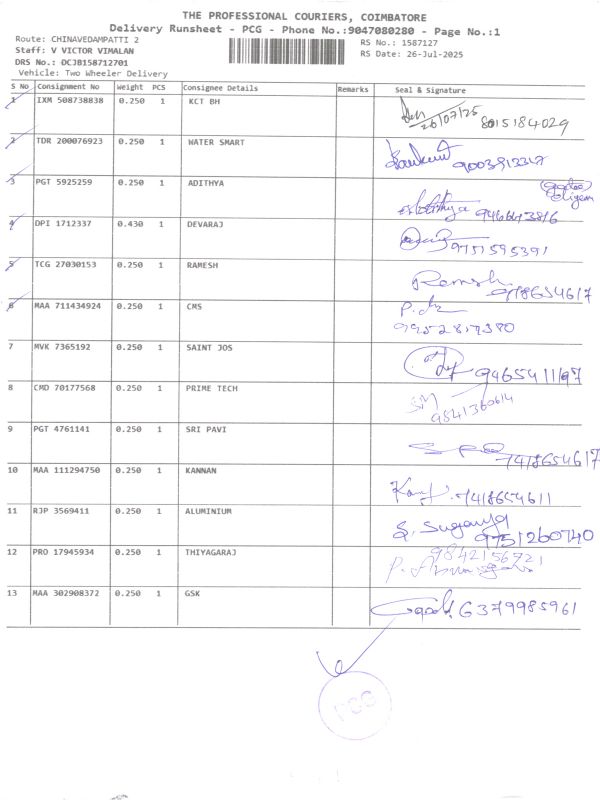 THE PROFESSIONAL COURIERS, COIMBATORE
Delivery Runsheet - PCG - Phone No.:9047080280 - Page No.:1
Route: CHINAVEDAMPATTI 2
RS No.: 1587127
Staff: V VICTOR VIMALAN
RS Date: 26-Jul-2025
DRS No.: DCJB158712701
Vehicle: Two Wheeler Delivery
S No Consignment No Weight PCS Consignee Details Remarks Seal & Signature
1 IXM 508738838 0.250 1 KCT BH 26/07/25 8015184029
2 TDR 200076923 0.250 1 WATER SMART
3 PGT 5925259 0.250 1 ADITHYA
4 DPI 1712337 0.430 1 DEVARAJ 9751595391
5 TCG 27030153 0.250 1 RAMESH Ramesh
6 MAA 711434924 0.250 1 CMS
7 MVK 7365192 0.250 1 SAINT JOS
8 CMD 70177568 0.250 1 PRIME TECH
9 PGT 4761141 0.250 1 SRI PAVI 7418654617
10 MAA 111294750 0.250 1 KANNAN 7418654611
11 RJP 3569411 0.250 1 ALUMINIUM S. Suganya 9751260740
12 PRO 17945934 0.250 1 THIYAGARAJ 9842156721
13 MAA 302908372 0.250 1 GSK 6379985961
PCG